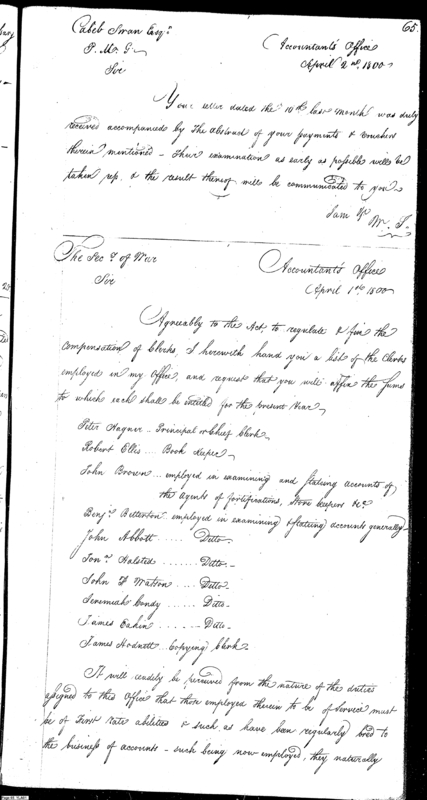 65.
Caleb Swan Esqr.
P. M. G.
Accountant's Office
April 2nd. 1800
Sir
Your letter dated the 10th last month was duly
received accompanied by the abstract of your payments &
therein mentioned - their examination as early as possible will be
taken up. & the result thereof will be communicated to you
I am &c
W. S.
The Secy. of War
Accountant's Office
April 1st 1800
Sir
Agreeably to the Act, to regulate & fix the
Compensation of Clerks, I herewith hand you a list of the Clerks
employed in my Office, and request that you will affix the Sums
to which each shall be entitled for the present Year
Peter Hagner .. Principal or Chief Clerk
Robert Ellis .... Book keeper
John Brown ... employed in examining and stateing accounts of
the agents of fortifications, Store keepers &c
Benjn. Betterton employed in examining & stateing accounts generally
John Abbott ..... Ditto
Jonn. Halsted ....... Ditto
John H Watson ... Ditto
Jeremiah Condy ...... Ditto
James Eakin ....... Ditto
James Hodnett .. Copying Clerk
It will readily be perceived from the nature of the duties
assigned to this Office that those employed therein to be of Service must
be of First rate abilities & such, as have been regularly bred to
the business of accounts - such being now employed, they naturally